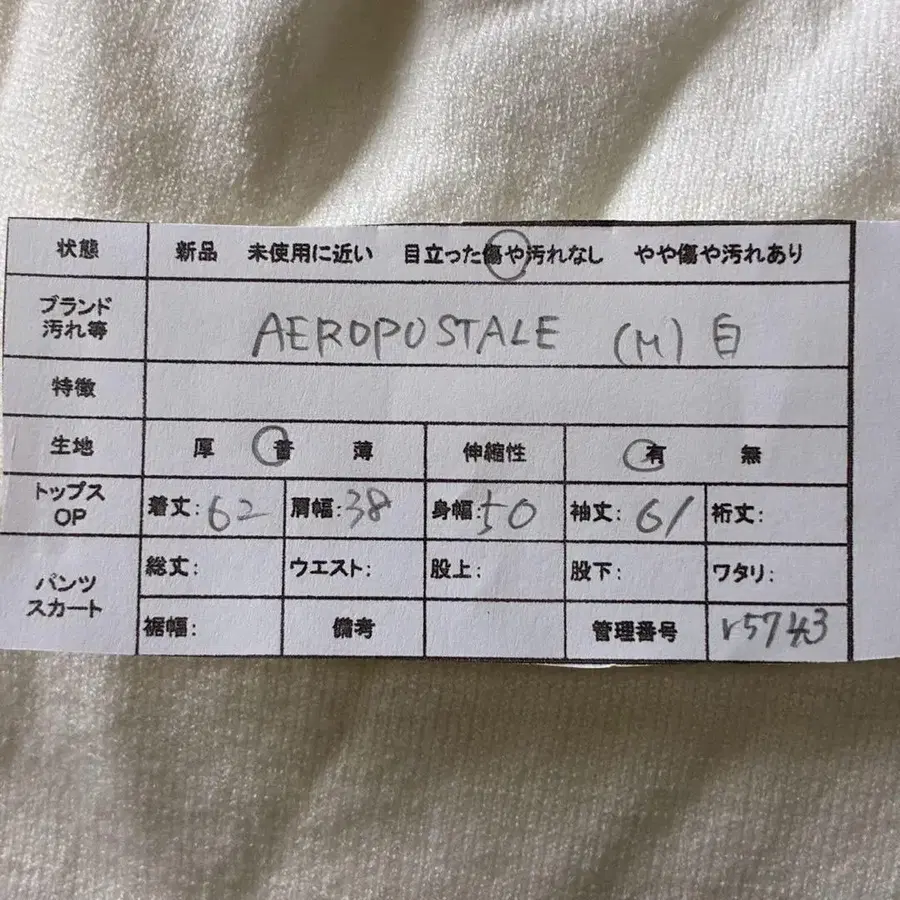 状態 新品 未使用に近い 目立った傷や汚れなし やや傷や汚れあり
ブランド
汚れ等 AEROPOSTALE (M) 白
特徴
生地 厚 普 薄 伸縮性 有 無
トップス
OP 着丈: 62 肩幅: 38 身幅: 50 袖丈: 61 裄丈:
パンツ
スカート 総丈: ウエスト: 股上: 股下: ワタリ:
裾幅: 備考 管理番号 r5743